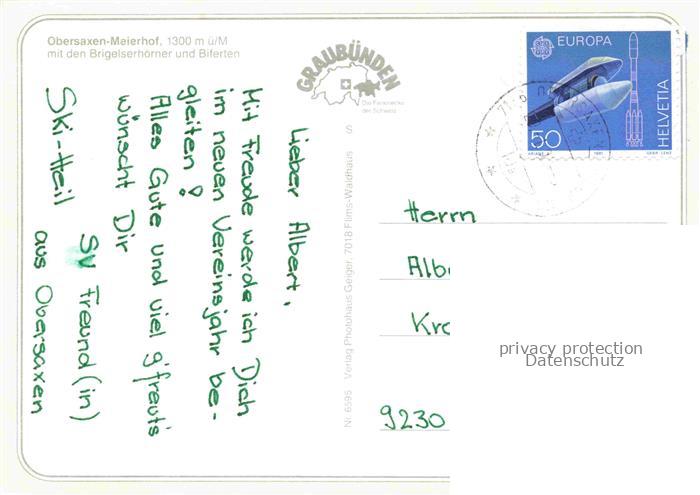 Obersaxen-Meierhof, 1300 m ü/M
mit den Brigelserhörner und Biferten
GRAUBÜNDEN
Die Ferienecke
der Schweiz
S
Nr. 6595 Verlag Photohaus Geiger, 7018 Flims-Waldhaus
Lieber Albert,
Mit Freude werde ich Dich
im neuen Vereinsjahr be-
gleiten!
Alles Gute und viel g'freuts
wünscht Dir
Ski-Heil
SV Freund(in)
aus Obersaxen
EUROPA
HELVETIA
50
1991
Herrn
Alb
Kr
9230
privacy protection
Datenschutz